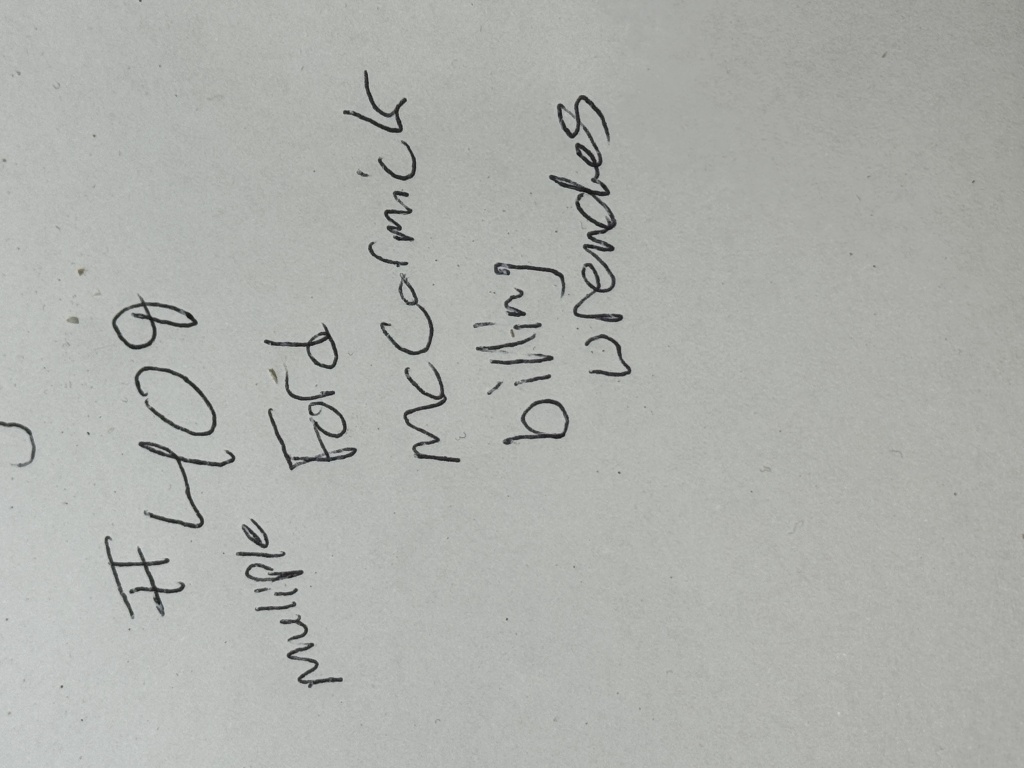 #409
muliple Ford
McCormick
billing
wrenches